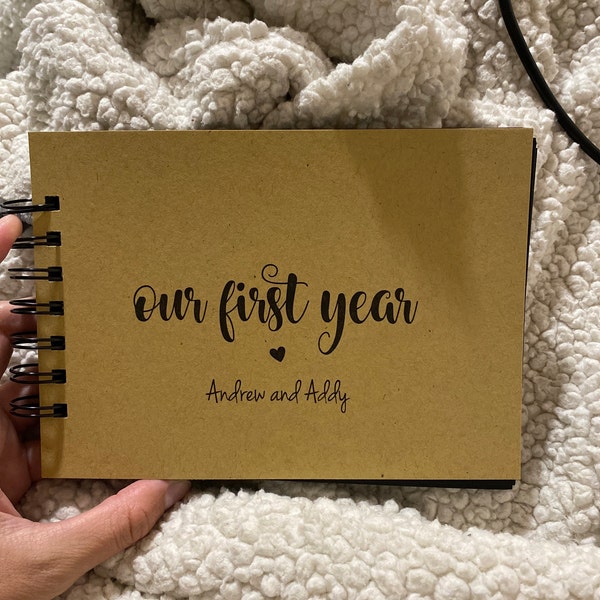 our first year
Andrew and Addy